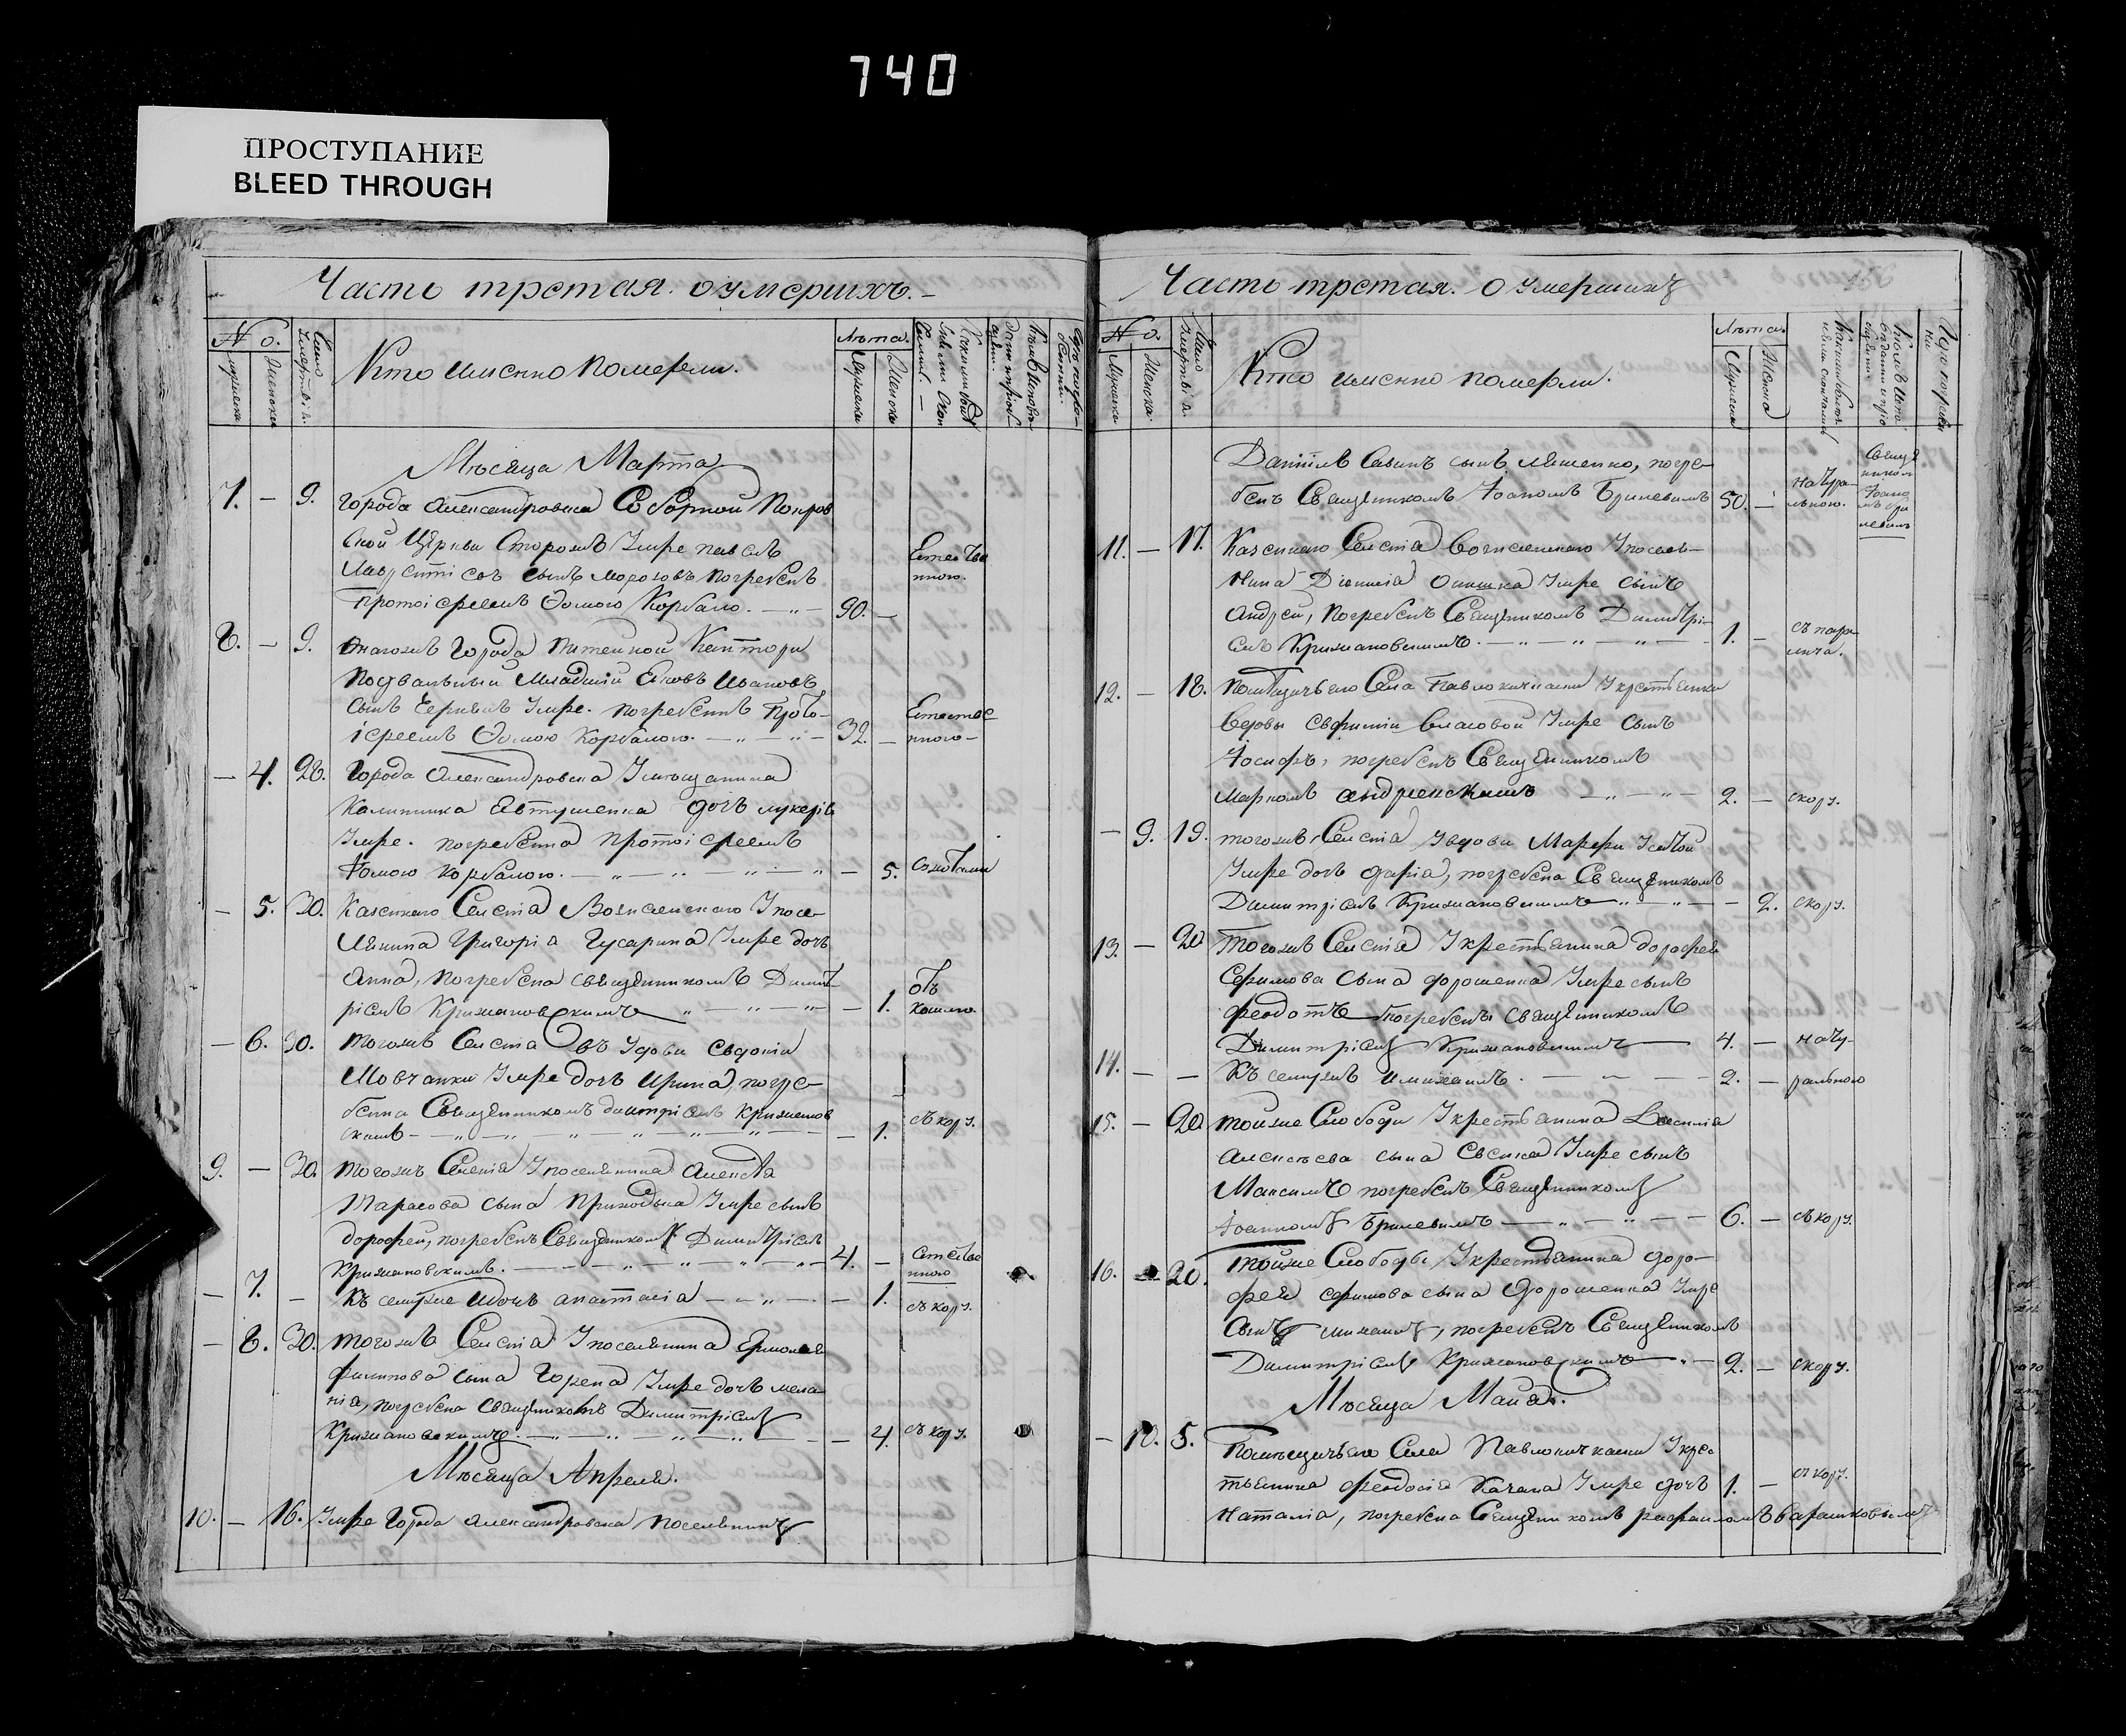 740
ПРОСТУПАНИЕ
BLEED THROUGH
Часть третая. о умершихъ.
No.
Лѣта.
Кто именно померли.
Мѣсяца Марта
7. — 9. города Александровска Соборной Покров
ской Церкви Сторожъ Умре
сынъ Морозовъ погребенъ
Протоіереемъ Ѳомою Корбаною. 90. —
Естестве
нною.
8. — 9. Онагожъ Города Питейной Канторы
Подвальный Младшій Яковъ Ивановъ
сынъ Умре. погребенъ Прото-
іереемъ Ѳомою Корбаною. 32. —
Естестве
нною
— 4. 28. Города Александровска Умещанина
Калиника Евтушенка дочь Лукерія
Умре. погребена Протоіереемъ
Ѳомою Корбаною. — 5.
— 5. 30. Казеннаго Селенія Вознесенскаго Упосе-
лянина Григорія Гусарина Умре дочь
Анна, погребена Священникомъ Димит
ріемъ Крижановскимъ — 1.
отъ
кашлю
— 6. 30. Тогожъ Селенія Удовы Евдокіи
Шовчанки Умре дочь Ирина, погре-
бена Священникомъ Дмитріемъ Крижанов
скимъ — 1. съ кору.
9. — 30. Тогожъ Селенія Упоселянина Алексѣя
Тарасова сына Приходька Умре сынъ
Дорофей, погребенъ Священникомъ Димитріемъ
Крижановскимъ. 4. —
Естестве
нною
— 7. — Къ семужъ Идочь Анастасія — 1. съ кору.
— 8. 30. Тогожъ Селенія Упоселянина Ермолая
Филипова сына Умре дочь Мела
нія, погребена Священникомъ Димитріемъ
Крижановскимъ. — 4. съ кору.
Мѣсяца Апреля.
10. — 16. Умре Города Александровска Поселянинъ
Часть третая. о умершихъ
No.
Лѣта.
Кто именно померли.
Даніилъ Савинъ сынъ Ляшенко, погре-
бенъ Священникомъ Іоаномъ Брилевимъ 50. —
Натура-
льною.
Священ
никомъ
Іоано
мъ Бри
левимъ
11. — 17. Казеннаго Селенія Вознесенскаго Упоселя-
нина Діонисія Онишка Умре сынъ
Андрей, погребенъ Священникомъ Димитрі-
емъ Крижановскимъ. 1. —
съ пара-
лича.
12. — 18. Помѣщичьяго Села Павлокичкаса Укрестьянки
Вдовы Евфиміи Власовой Умре сынъ
Іосифъ, погребенъ Священникомъ
Маркомъ Андріевскимъ 2. — скору.
— 9. 19. тогожъ Селенія Увдовы Марфы
Умре дочь Дарія, погребена Священникомъ
Димитріемъ Крижановскимъ — 2. скору.
13. — 20. Тогожъ Селенія Укрестьянина Дорофея
Ефимова сына Дорошенка Умре сынъ
Феодотъ погребенъ Священникомъ
Димитріемъ Крижановскимъ 4. — нату-
14. — — Къ семужъ Имихаилъ. 2. — ральною
15. — 20. тойже Слободы Укрестьянина Василія
Алексѣева сына Умре сынъ
Максимъ погребенъ Священникомъ
Іоанномъ Брилевимъ 6. — съ кору.
16. — 20. тойже Слободы Укрестьянина Доро-
фея Ефимова сына Дорошенка Умре
сынъ Михаилъ, погребенъ Священникомъ
Димитріемъ Крижановскимъ 2. — скору.
Мѣсяца Маия.
— 10. 5. Помѣщичьяго Села Павлокичкаса Укре
стьянина Феодосія Качана Умре дочь 1. — съ кору.
Наталія, погребена Священникомъ Рафаиломъ Барашковымъ